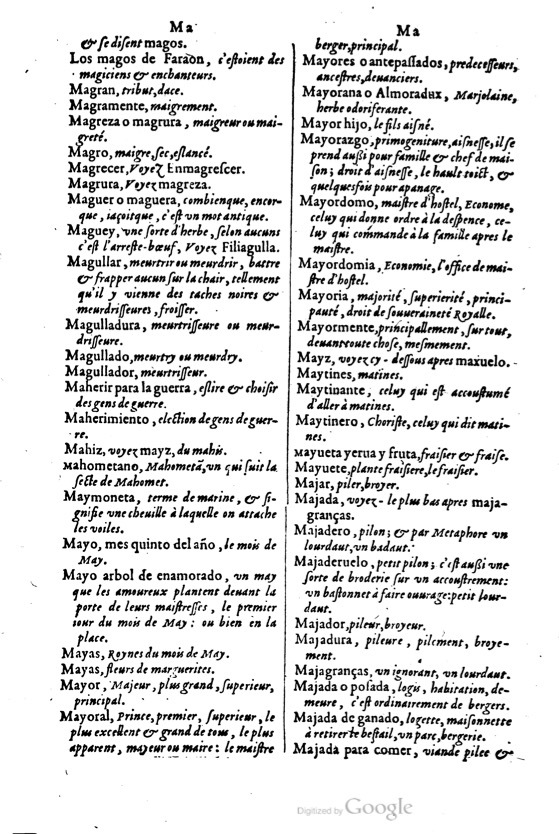 Ma
& se disent magos.
Los magos de Faraon, c'estoient des
magiciens & enchanteurs.
Magran, tribut, dace.
Magramente, maigrement.
Magreza o magrura, maigreur ou mai-
greté.
Magro, maigre, sec, eslancé.
Magrecer, Voyez Enmagrescer.
Magrura, Voyez magreza.
Maguer o maguera, combienque, encor-
que, iaçoitque, c'est vn mot antique.
Maguey, vne sorte d'herbe, selon aucuns
c'est l'arreste-bœuf, Voyez Filiagulla.
Magullar, meurtrir ou meurdrir, battre
& frapper aucun sur la chair, tellement
qu'il y vienne des taches noires &
meurdrisseures, froisser.
Magulladura, meurtrisseure ou meur-
drisseure.
Magullado, meurtry ou meurdry.
Magullador, meurtrisseur.
Maherir para la guerra, eslire & choisir
des gens de guerre.
Maherimiento, election de gens de guer-
re.
Mahiz, voyez mayz, du mahis.
Mahometano, Mahometã, vn qui suit la
secte de Mahomet.
Maymoneta, terme de marine, & si-
gnifie vne cheuille à laquelle on attache
les voiles.
Mayo, mes quinto del año, le mois de
May.
Mayo arbol de enamorado, vn may
que les amoureux plantent deuant la
porte de leurs maistresses, le premier
iour du mois de May: ou bien en la
place.
Mayas, Roynes du mois de May.
Mayas, fleurs de marguerites.
Mayor, Majeur, plus grand, superieur,
principal.
Mayoral, Prince, premier, superieur, le
plus excellent & grand de tous, le plus
apparent, mayeur ou maire: le maistre
Ma
berger, principal.
Mayores o antepassados, predecesseurs,
ancestres, deuanciers.
Mayorana o Almoradux, Marjolaine,
herbe odoriferante.
Mayor hijo, le fils aisné.
Mayorazgo, primogeniture, aisnesse, il se
prend aussi pour famille & chef de mai-
son; droit d'aisnesse, le hault toict, &
quelquesfois pour apanage.
Mayordomo, maistre d'hostel, Econome,
celuy qui donne ordre à la despence, ce-
luy qui commande à la famille apres le
maistre.
Mayordomia, Economie, l'office de mai-
stre d'hostel.
Mayoria, majorité, superierité, princi-
pauté, droit de souueraineté Royalle.
Mayormente, principallement, sur tout,
deuant toute chose, mesmement.
Mayz, voyez cy-dessous apres maxuelo.
Maytines, matines.
Maytinante, celuy qui est accoustumé
d'aller à matines.
Maytinero, Choriste, celuy qui dit mati-
nes.
Mayueta yerua y fruta, fraisier & fraise.
Mayuete, plante fraisiere, le fraisier.
Majar, piler, broyer.
Majada, voyez-le plus bas apres maja-
granças.
Majadero, pilon; & par Metaphore vn
lourdaut, vn badaut.
Majaderuelo, petit pilon; c'est aussi vne
sorte de broderie sur vn accoustrement:
vn bastonnet à faire ouurage: petit lour-
daut.
Majador, pileur, broyeur.
Majadura, pileure, pilement, broye-
ment.
Majagranças, vn ignorant, vn lourdaut.
Majada o posada, logis, habitation, de-
meure, c'est ordinairement de bergers.
Majada de ganado, logette, maisonnette
à retirer le bestail, vn parc, bergerie.
Majada para comer, viande pilee &
Digitized by Google